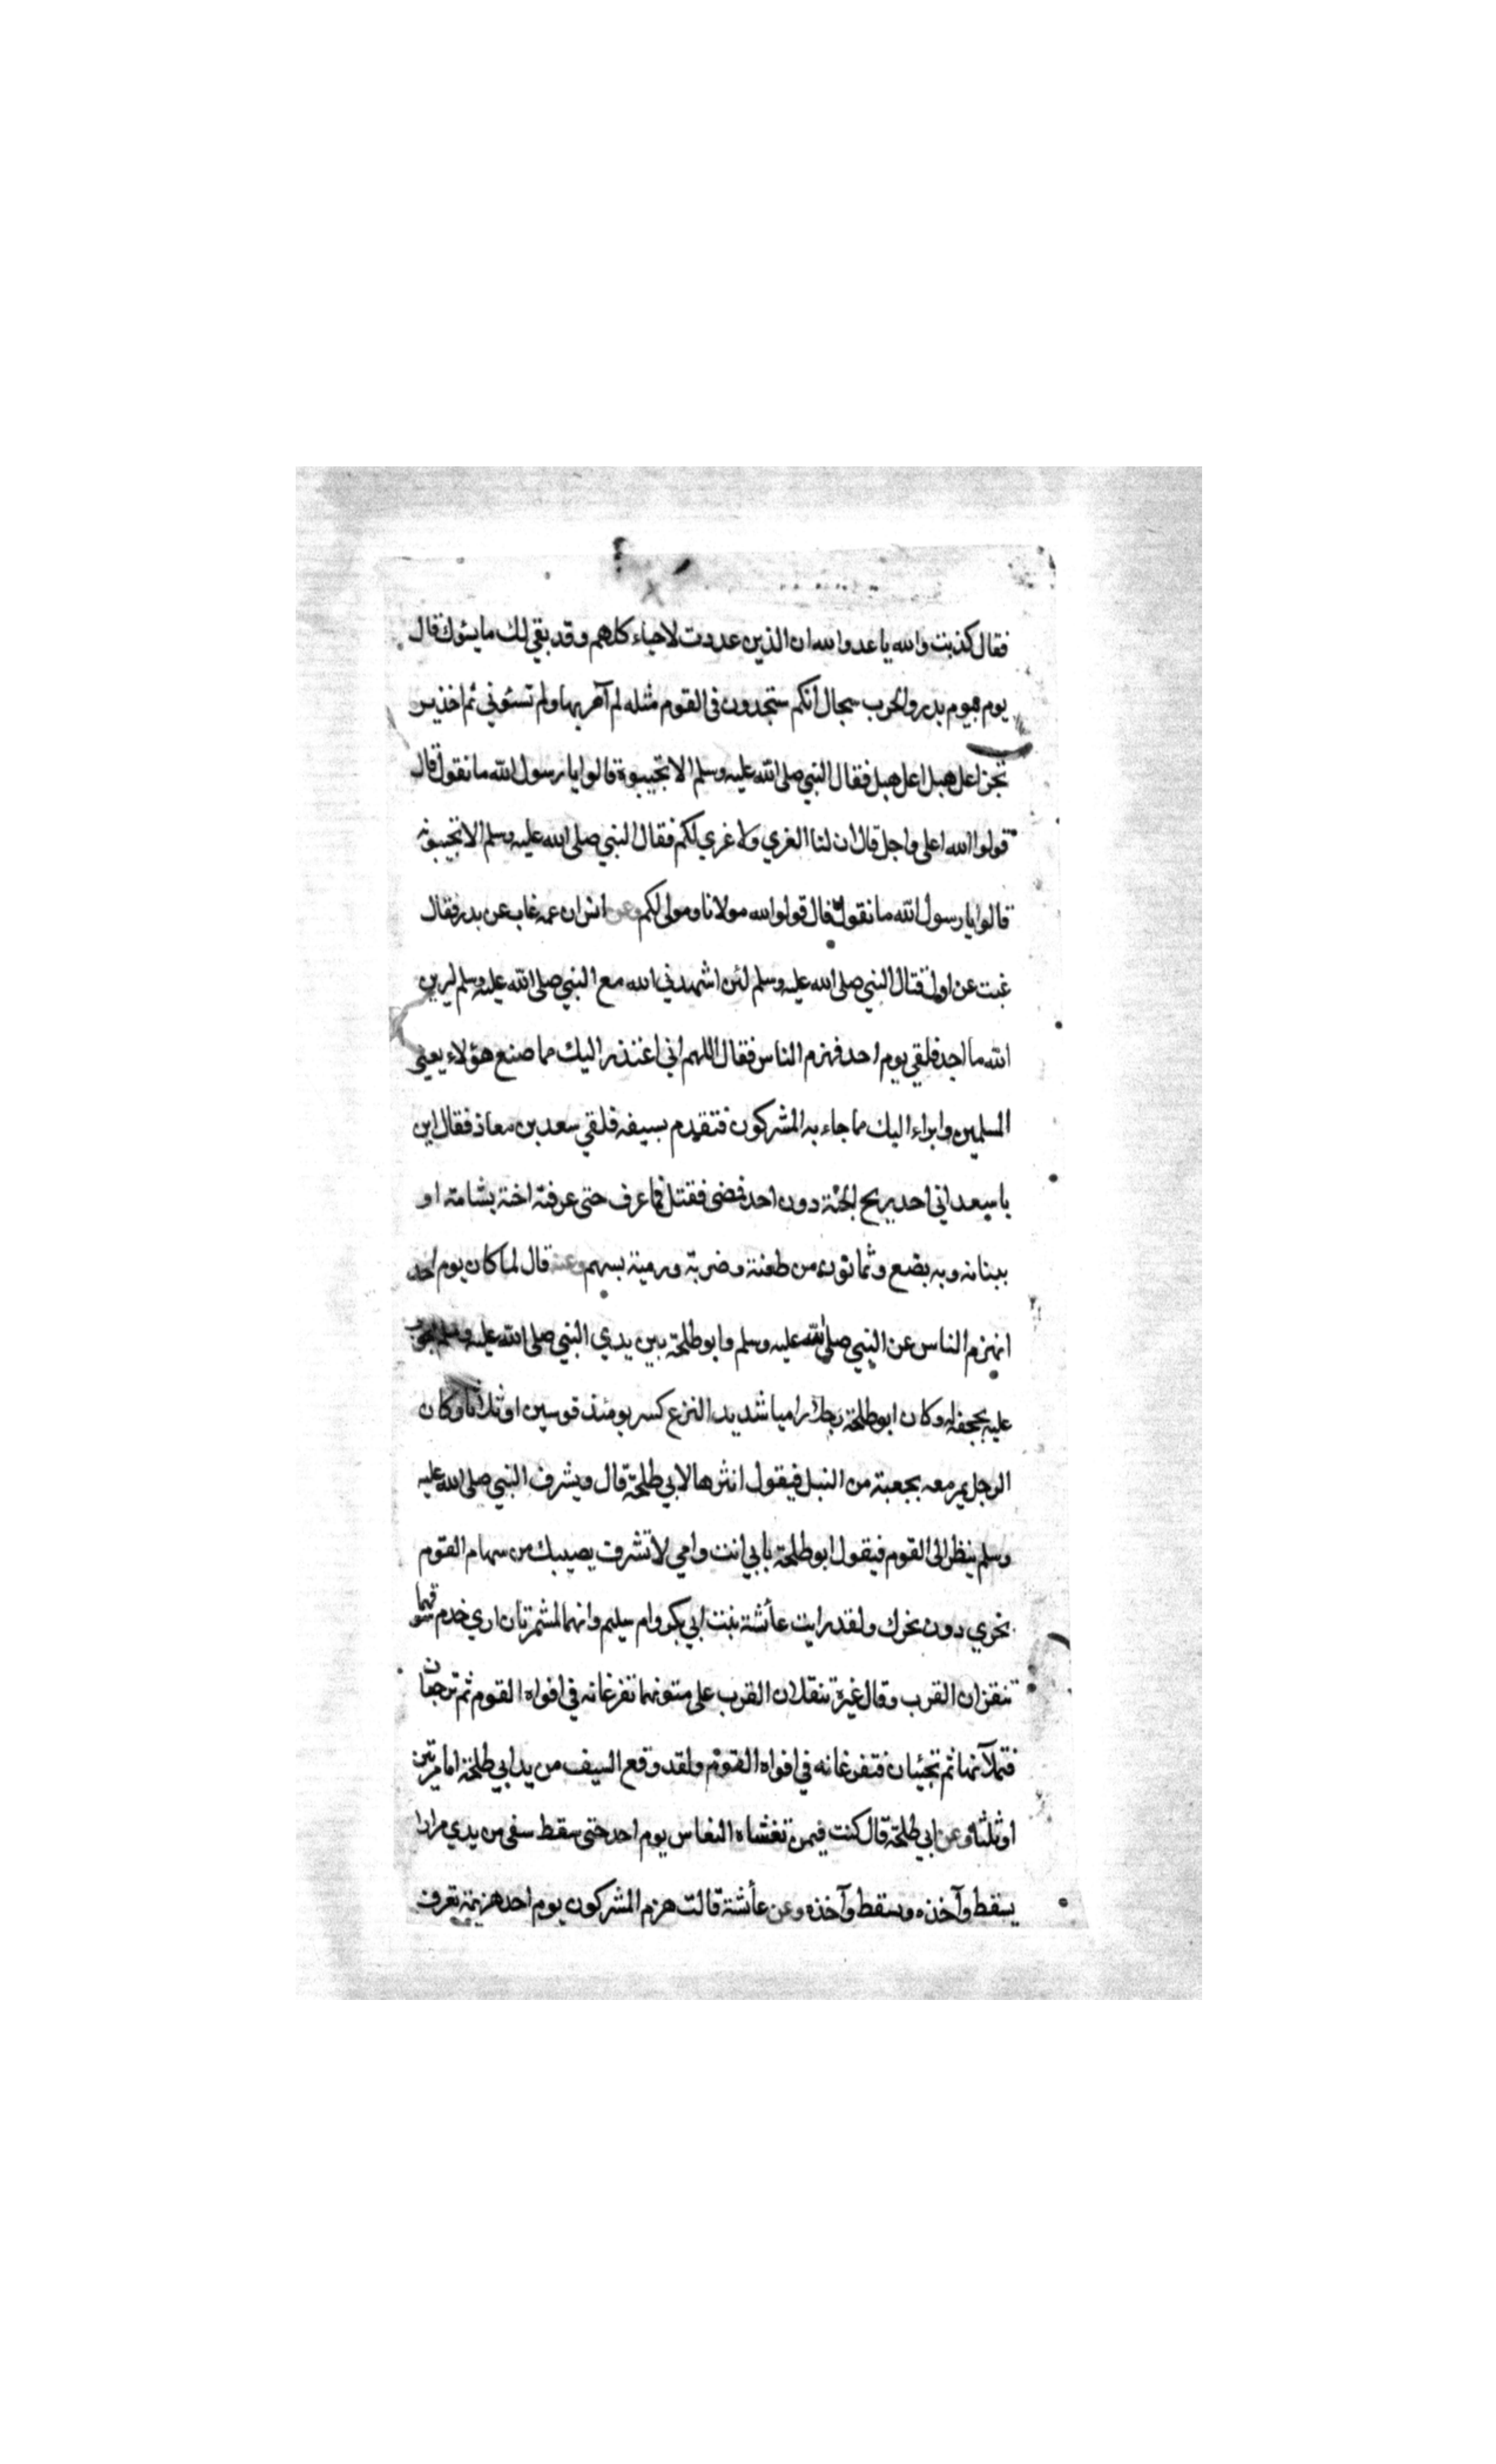 فقال كذبت والله يا عدو الله ان الذين عددت لاحياء كلهم وقد بقي لك ما يسؤك قال
يوم بيوم بدر والحرب سجال انكم ستجدون في القوم مثله لم آمر بها ولم تسئوني ثم اخذ ير
تجز اعل هبل اعل هبل فقال النبي صلى الله عليه وسلم الا تجيبوه قالوا يا رسول الله ما نقول قال
قولوا الله اعلى واجل قال ان لنا العزي ولا عزي لكم فقال النبي صلى الله عليه وسلم الا تجيبونه
قالوا يا رسول الله ما نقول قال قولوا الله مولانا ومولى لكم وعن انس ان عمه غاب عن بدر فقال
غبت عن اول قتال النبي صلى الله عليه وسلم لئن اشهدني الله مع النبي صلى الله عليه وسلم ليرين
الله ما اجد فلقي يوم احد فهزم الناس فقال اللهم اني اعتذر اليك مما صنع هؤلاء يعني
المسلمين وابراء اليك مما جاء به المشركون فتقدم بسيفه فلقي سعد بن معاذ فقال اين
يا سعد اني احد يريح الجنة دون احد فمضى فقتل فما عرف حتى عرفته اخته بشامة او
ببنانه وبه بضع وثمانون من طعنة وضربة ورمية بسهم وعنه قال لما كان يوم احد
انهزم الناس عن النبي صلى الله عليه وسلم وابو طلحة بين يدي النبي صلى الله عليه وسلم مجوب
عليه بحجفله وكان ابو طلحة رجلا راميا شديد النزع كسر يومئذ قوسين او ثلاثا وكان
الرجل يمر معه بجعبة من النبل فيقول انثرها لابي طلحة قال ويشرف النبي صلى الله عليه
وسلم ينظر الى القوم فيقول ابو طلحة بابي انت وامي لا تشرف يصيبك من سهام القوم
نحري دون نحرك ولقد رايت عائشة بنت ابي بكر وام سليم وانهما لمشمرتان اري خدم سوقهما
تنقزان القرب وقال غيره تنقلان القرب على متونهما تفرغانه في افواه القوم ثم ترجعان
فتملآنها ثم تجيئان فتفرغانه في افواه القوم ولقد وقع السيف من يد ابي طلحة اما مرتين
او ثلثا وعن ابي طلحة قال كنت فيمن تغشاه النعاس يوم احد حتى سقط سفي من يدي مرارا
يسقط وآخذه ويسقط وآخذه وعن عائشة قالت هزم المشركون يوم احد هزيمة تعرف